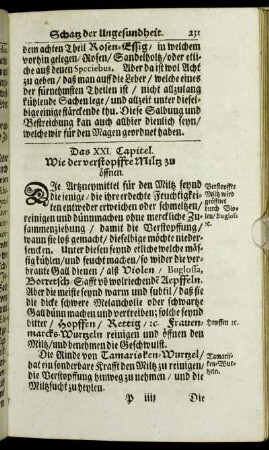 Schatz der Ungesundheit. 231
dem achten Theil Rosen-Essig / in welchem
vorhin gelegen / Rosen / Sandelholtz / oder etli-
che auß denen Speciebus. Aber da ist wol Acht
zu geben / daß man auff die Leber / welche eines
der fürnehmsten Theilen ist / nicht allzulang
kühlende Sachen lege / und allzeit unter diesel-
bige einige stärckende thu. Diese Salbung und
Bestreichung kan auch allhier dienlich seyn /
welche wir für den Magen geordnet haben.
Das XXI. Capitel.
Wie der verstopffte Miltz zu
öffnen.
DIe Artzneymittel für den Miltz seynd
die jenige / die ihre erdechte Feuchtigkei-
ten entweder erweichen oder schmeltzen /
reinigen und dünnmachen ohne merckliche Zu-
sammenziehung / damit die Verstopffung /
wann sie loß gemacht / dieselbige möchte nieder-
setzen. Unter diesen seynd etliche welche mäs-
sig kühlen / und feucht machen / so wider die ver-
brante Gall dienen / alß Violen / Buglossa,
Borretsch-Safft vö wolriechende Aepffeln.
Aber die meiste seynd warm und subtil / daß sie
die dick schwere Melancholie oder schwartze
Gall dünn machen und vertreiben; solche seynd
bitter / Hopffen / Rettig / ꝛc. Frauen-
marcks-Wurtzeln reinigen und öffnen den
Miltz / und benehmen die Geschwulst.
Die Rinde von Tamarisken-Wurtzel /
hat ein sonderbare Krafft den Miltz zu reinigen /
die Verstopffung hinweg zu nehmen / und die
Miltzsucht zu heylen.
P iiij Die
Verstopffte
Miltz wird
geöffnet
durch Vio-
len / Bugloss
ꝛc.
Hopffen ꝛc.
Tamaris-
ken-Wur-
tzeln.